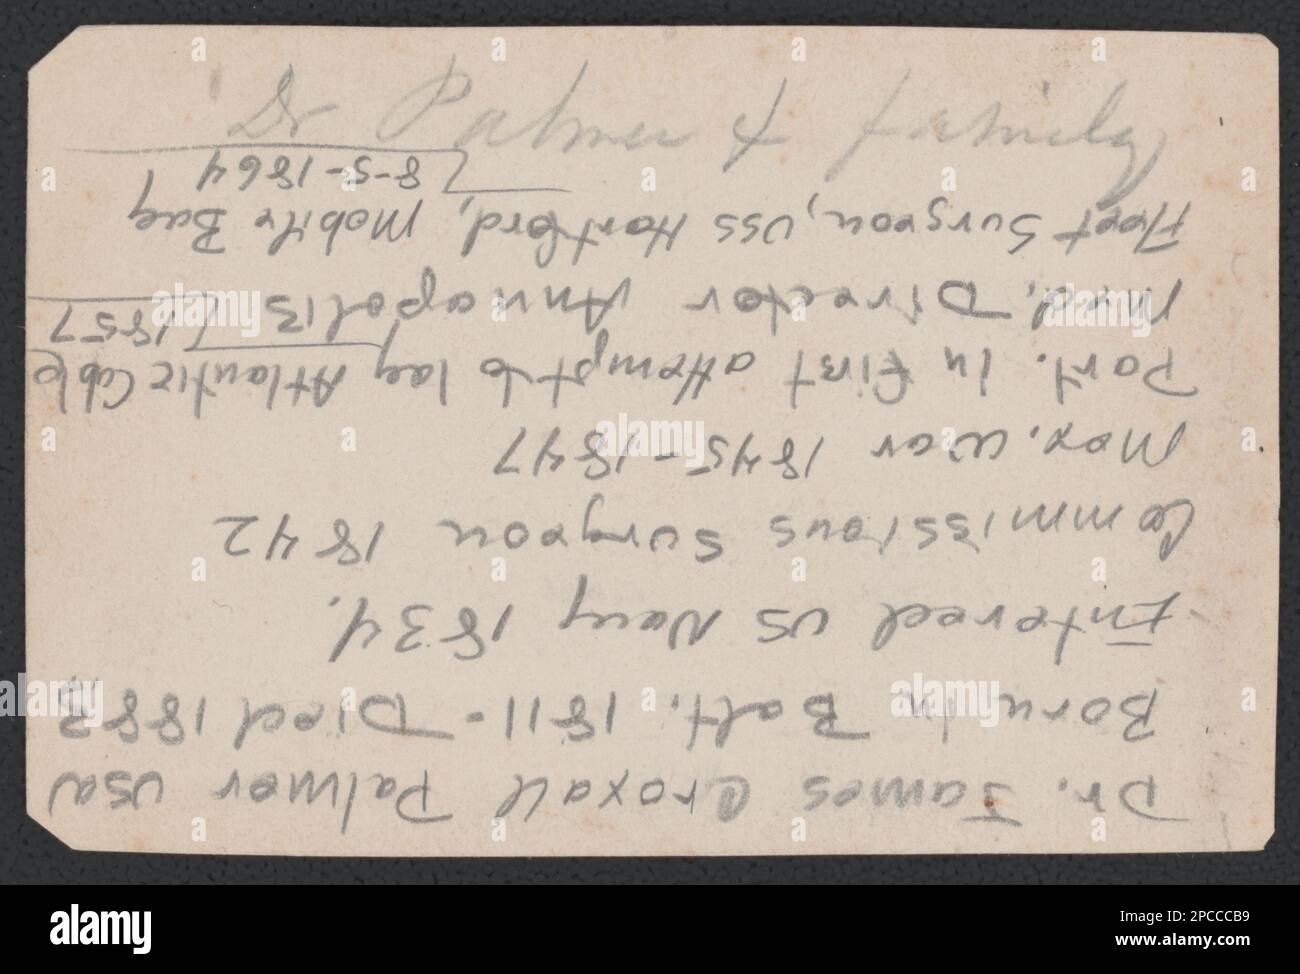 Dr Palmer & family
Dr. James Croxall Palmer USN
Born in Balt. 1811 - Died 1883
Entered US Navy 1834.
Commissions Surgeon 1842
Mex. War 1845-1847
Part. In first attempt to lay Atlantic Cable
1857
Med. Director Annapolis
Fleet Surgeon, USS Hartford, Mobile Bay
8-5-1864
alamy
Image ID: 2PCCCB9
www.alamy.com